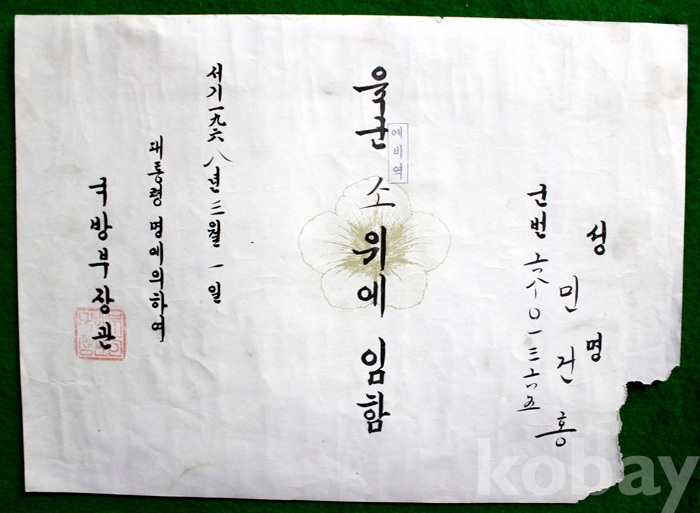 성명
민건홍
군번 六八-〇一三六五
육군 소위에 임함
예비역
서기 一九六八년 三월 一일
대통령 명에 의하여
국방부장관
kobay